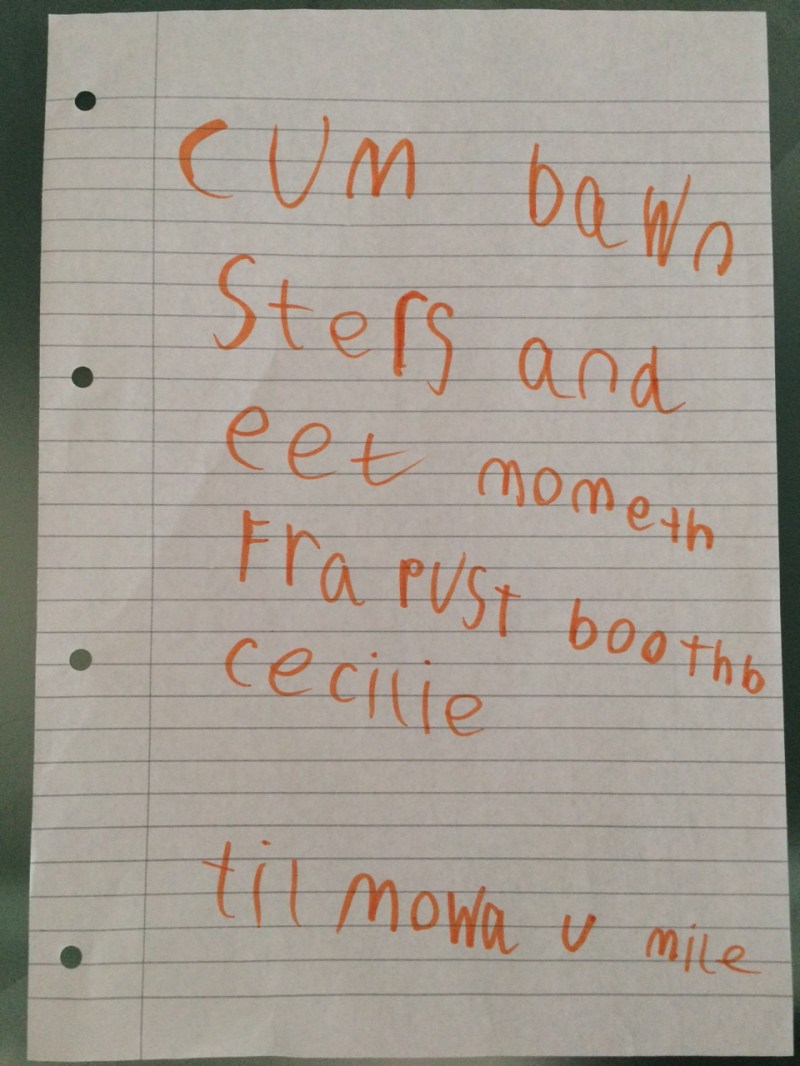 cUm bawn
Sters and
eet mometh
Fra PUSt boothb
cecilie
til mowa u mile